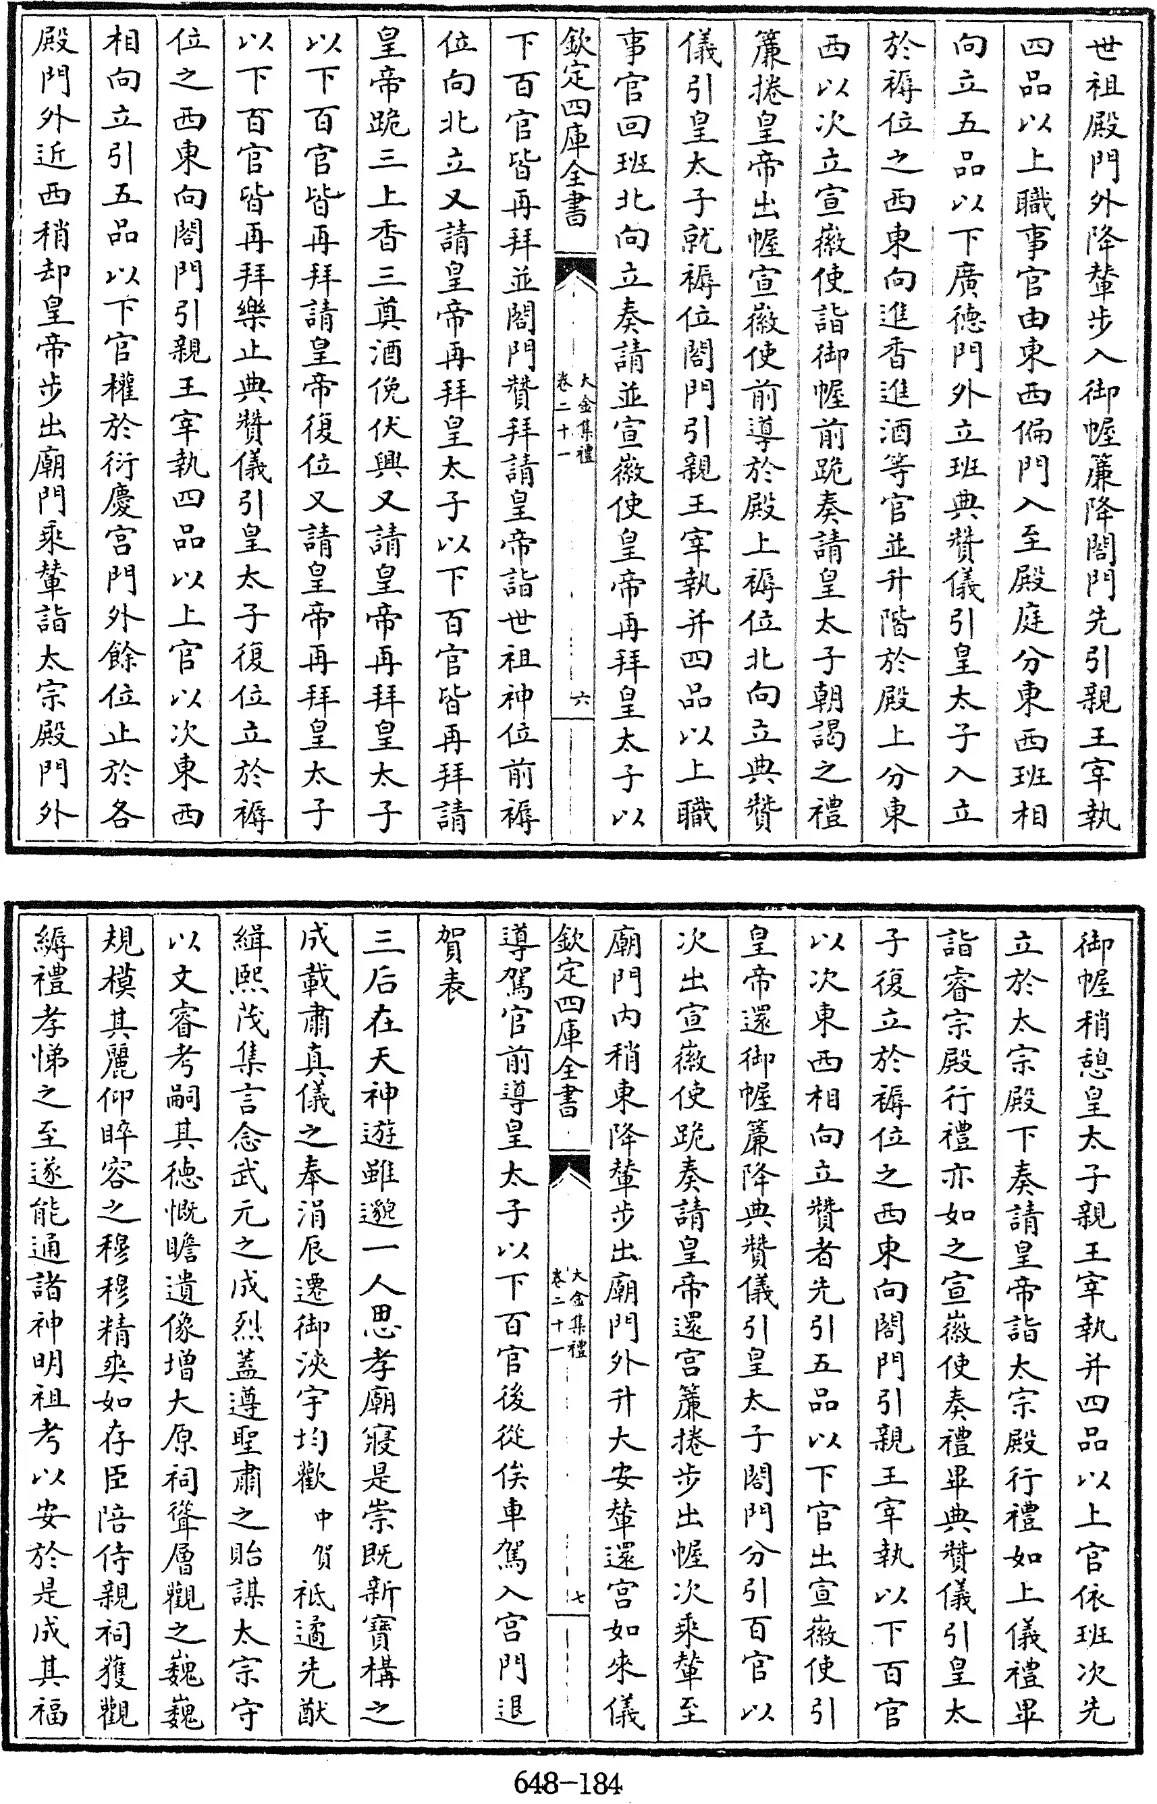 世祖殿門外降輦步入御幄簾降閤門先引親王宰執
四品以上職事官由東西偏門入至殿庭分東西班相
向立五品以下廣德門外立班典贊儀引皇太子入立
於褥位之西東向進香進酒等官並升階於殿上分東
西以次立宣徽使詣御幄前跪奏請皇太子朝謁之禮
簾捲皇帝出幄宣徽使前導於殿上褥位北向立典贊
儀引皇太子就褥位閤門引親王宰執并四品以上職
事官回班北向立奏請並宣徽使皇帝再拜皇太子以
欽定四庫全書
大金集禮
卷二十一
六
下百官皆再拜並閤門贊拜請皇帝詣世祖神位前褥
位向北立又請皇帝再拜皇太子以下百官皆再拜請
皇帝跪三上香三奠酒俛伏興又請皇帝再拜皇太子
以下百官皆再拜請皇帝復位又請皇帝再拜皇太子
以下百官皆再拜樂止典贊儀引皇太子復位立於褥
位之西東向閤門引親王宰執四品以上官以次東西
相向立引五品以下官權於衍慶宮門外餘位止於各
殿門外近西稍却皇帝步出廟門乘輦詣太宗殿門外
御幄稍憩皇太子親王宰執并四品以上官依班次先
立於太宗殿下奏請皇帝詣太宗殿行禮如上儀禮畢
詣睿宗殿行禮亦如之宣徽使奏禮畢典贊儀引皇太
子復立於褥位之西東向閤門引親王宰執以下百官
以次東西相向立贊者先引五品以下官出宣徽使引
皇帝還御幄簾降典贊儀引皇太子閤門分引百官以
次出宣徽使跪奏請皇帝還宮簾捲步出幄次乘輦至
廟門內稍東降輦步出廟門外升大安輦還宮如來儀
欽定四庫全書
大金集禮
卷二十一
七
導駕官前導皇太子以下百官後從俟車駕入宮門退
賀表
三后在天神遊雖邈一人思孝廟寢是崇既新寶構之
成載肅真儀之奉涓辰遷御浹宇均歡中賀祗遹先猷
緝熙茂集言念武元之成烈蓋遵聖肅之貽謀太宗守
以文睿考嗣其德慨瞻遺像增大原祠聳層觀之巍巍
規模其麗仰睟容之穆穆精爽如存臣陪侍親祠獲觀
縟禮孝悌之至遂能通諸神明祖考以安於是成其福
648-184